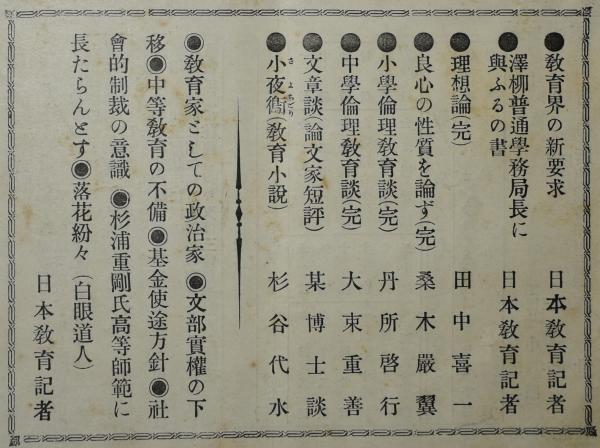 ●敎育界の新要求 日本敎育記者
●澤柳普通學務局長に與ふるの書 日本敎育記者
●理想論(完) 田中喜一
●良心の性質を論ず(完) 桑木嚴翼
●小學倫理敎育談(完) 丹所啓行
●中學倫理敎育談(完) 大束重善
●文章談(論文家短評) 某博士談
●小夜鵆(敎育小說) 杉谷代水
さよちどり
◉敎育家としての政治家 ◉文部實權の下
移◉中等敎育の不備◉基金使途方針◉社
會的制裁の意識 ◉杉浦重剛氏高等師範に
長たらんとす◉落花紛々 (白眼道人)
日本敎育記者